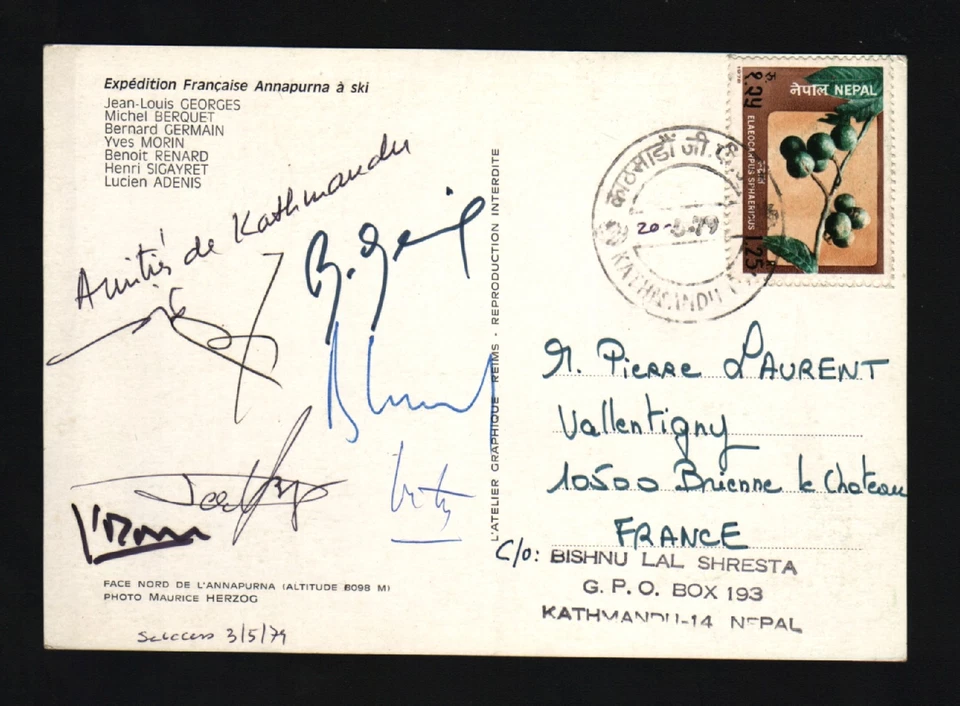 Expédition Française Annapurna à ski
Jean-Louis GEORGES
Michel BERQUET
Bernard GERMAIN
Yves MORIN
Benoit RENARD
Henri SIGAYRET
Lucien ADENIS
Amitiés de Kathmandu
FACE NORD DE L'ANNAPURNA (ALTITUDE 8098 M)
PHOTO MAURICE HERZOG
Success 3/5/79
L'ATELIER GRAPHIQUE REIMS - REPRODUCTION INTERDITE
काठमाडौं जी.पी.ओ.
79
KATHMANDU
नेपाल NEPAL
१.२५
ELAEOCARPUS SPHAERICUS
1.25
M. Pierre LAURENT
Vallentigny
10500 Brienne le Chateau
FRANCE
C/o: BISHNU LAL SHRESTA
G. P. O. BOX 193
KATHMANDU-14 NEPAL